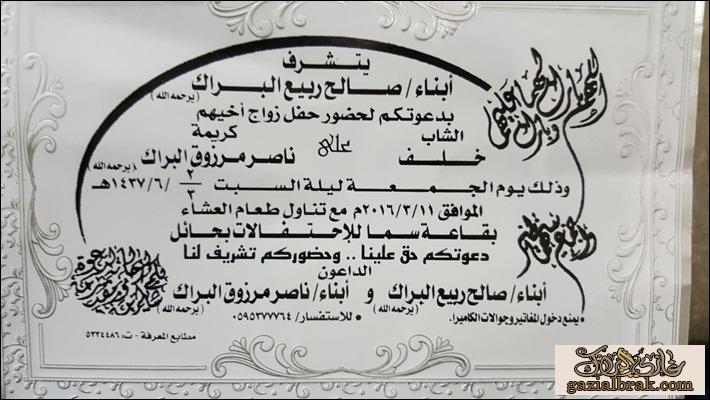 يتشرف
أبناء/ صالح ربيع البراك (يرحمه الله)
بدعوتكم لحضور حفل زواج أخيهم
الشاب كريمة
خلف على ناصر مرزوق البراك (يرحمه الله)
وذلك يوم الجمعة ليلة السبت ٢/٣ /١٤٣٧/٦هـ
الموافق ٢٠١٦/٣/١١م مع تناول طعام العشاء
بقاعة سما للإحتفالات بحائل
دعوتكم حق علينا .. وحضوركم تشريف لنا
الداعون
أبناء/ صالح ربيع البراك (يرحمه الله) و أبناء/ ناصر مرزوق البراك (يرحمه الله)
• يمنع دخول المفاتير وجوالات الكاميرا. • للاستفسار/ ٠٥٩٥٣٧٧٧٦٤
مطابع المعرفة - ت: ٥٣٣٤٤٨٦
اللهم بارك لهما وبارك عليهما
واجمع بينهما بخير
gazialbrak.com